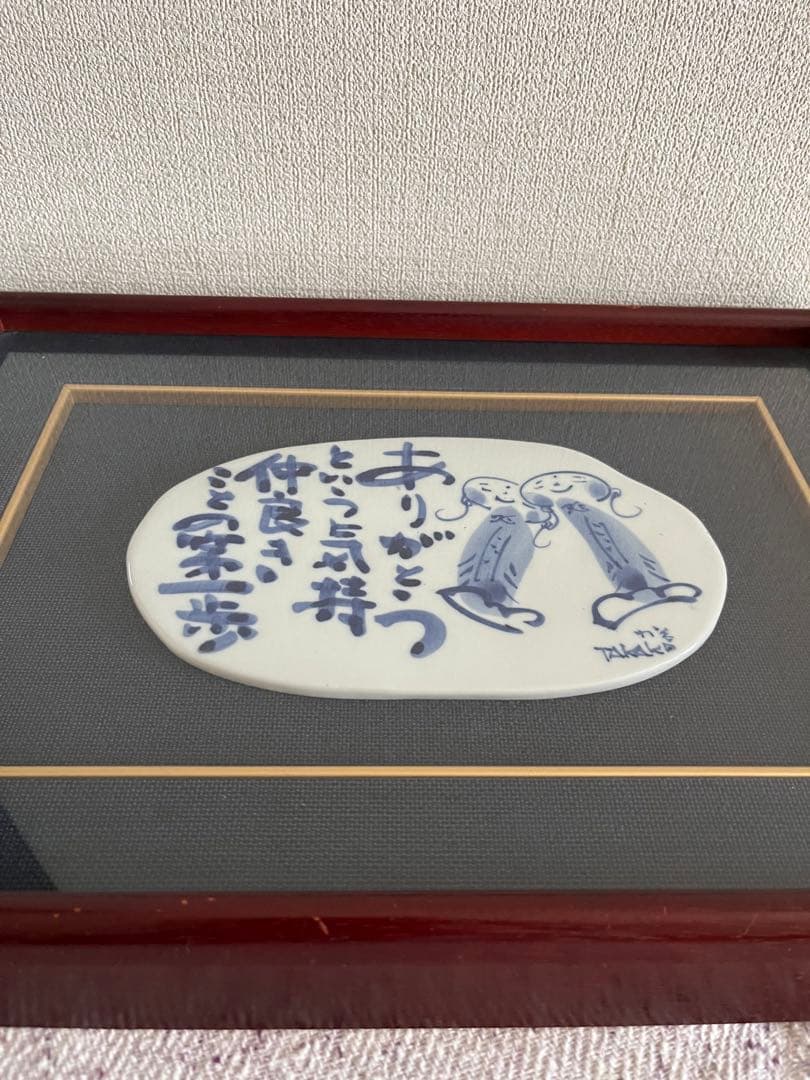 ありがとう
という気持
仲良き
ことの第一歩
TAKAKO